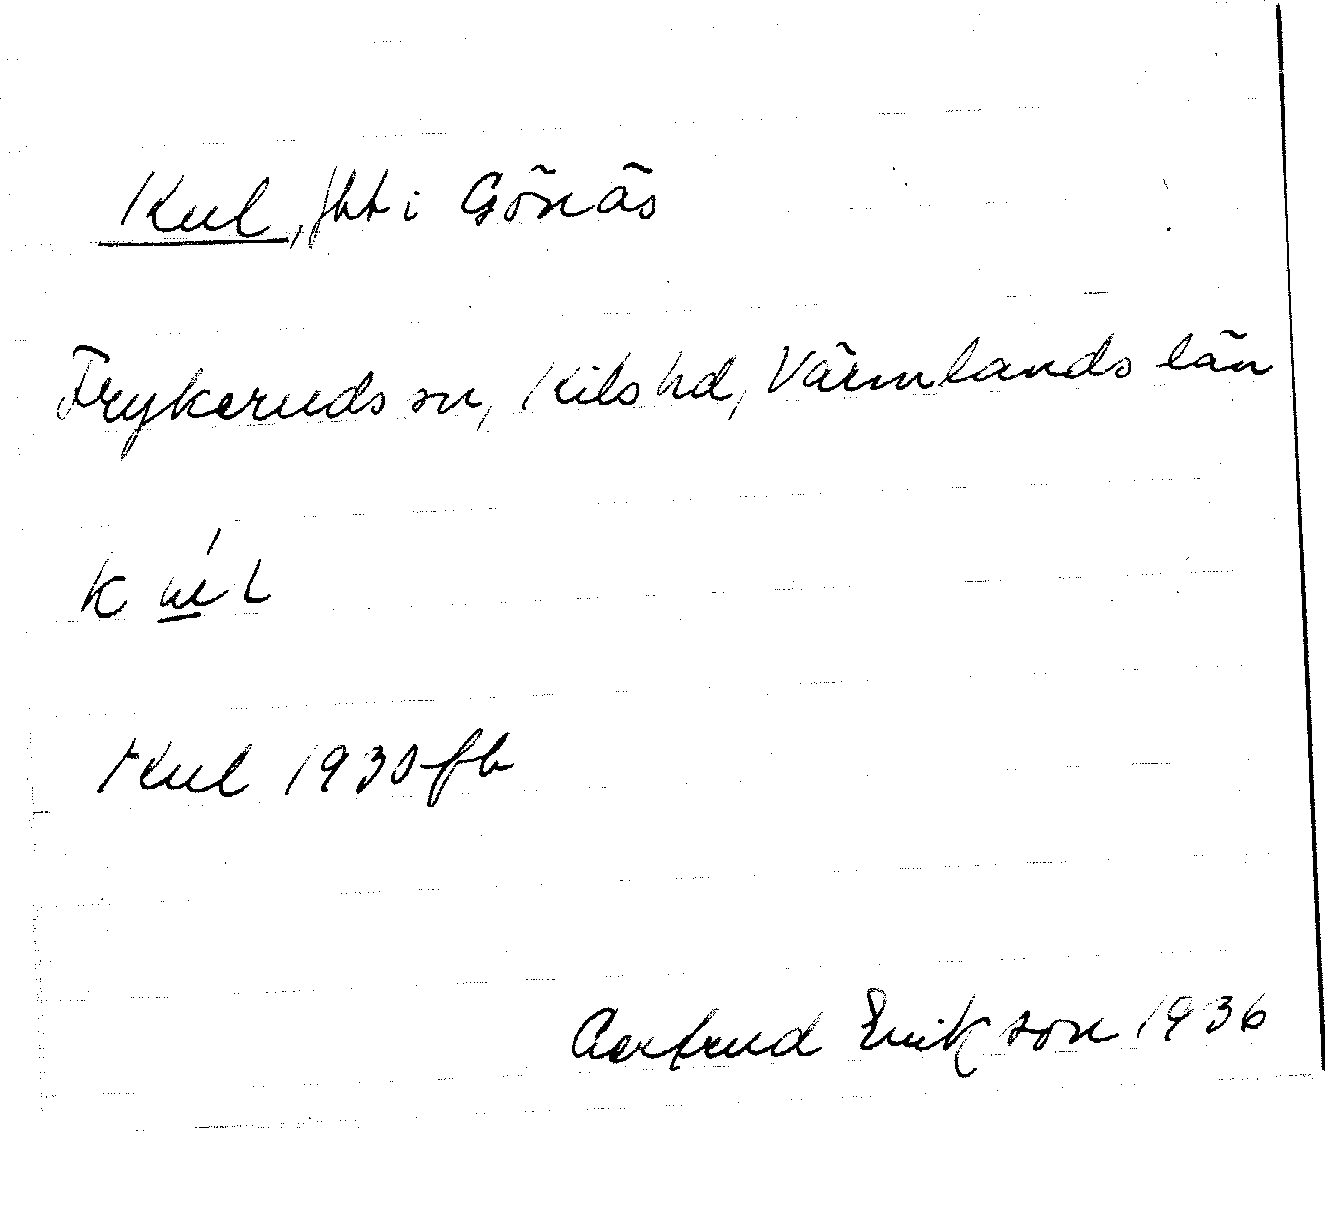 Kul, fht i Gönäs
Frykeruds sn, Kils hd, Värmlands län
Kul 1930 fb
Gertrud Erikson 1936